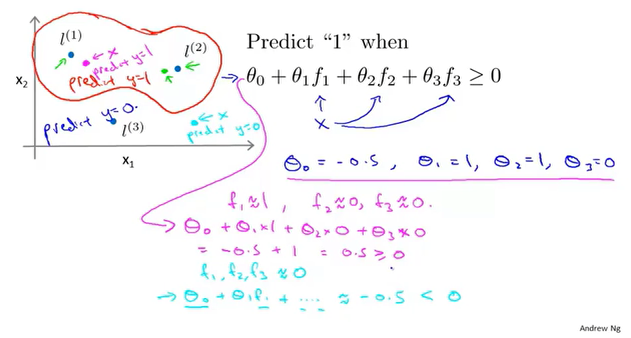 l⁽¹⁾
l⁽²⁾
← x
predict y=1
predict y=1
x₂
predict y=0.
l⁽³⁾
← x
predict y=0
x₁
Predict “1” when
→ θ₀ + θ₁f₁ + θ₂f₂ + θ₃f₃ ≥ 0
x
θ₀ = -0.5 , θ₁ = 1, θ₂ = 1, θ₃ = 0
f₁ ≈ 1 , f₂ ≈ 0, f₃ ≈ 0.
θ₀ + θ₁×1 + θ₂×0 + θ₃×0
= -0.5 + 1 = 0.5 ≥ 0
f₁, f₂, f₃ ≈ 0
→ θ₀ + θ₁f₁ + .... ≈ -0.5 < 0
Andrew Ng